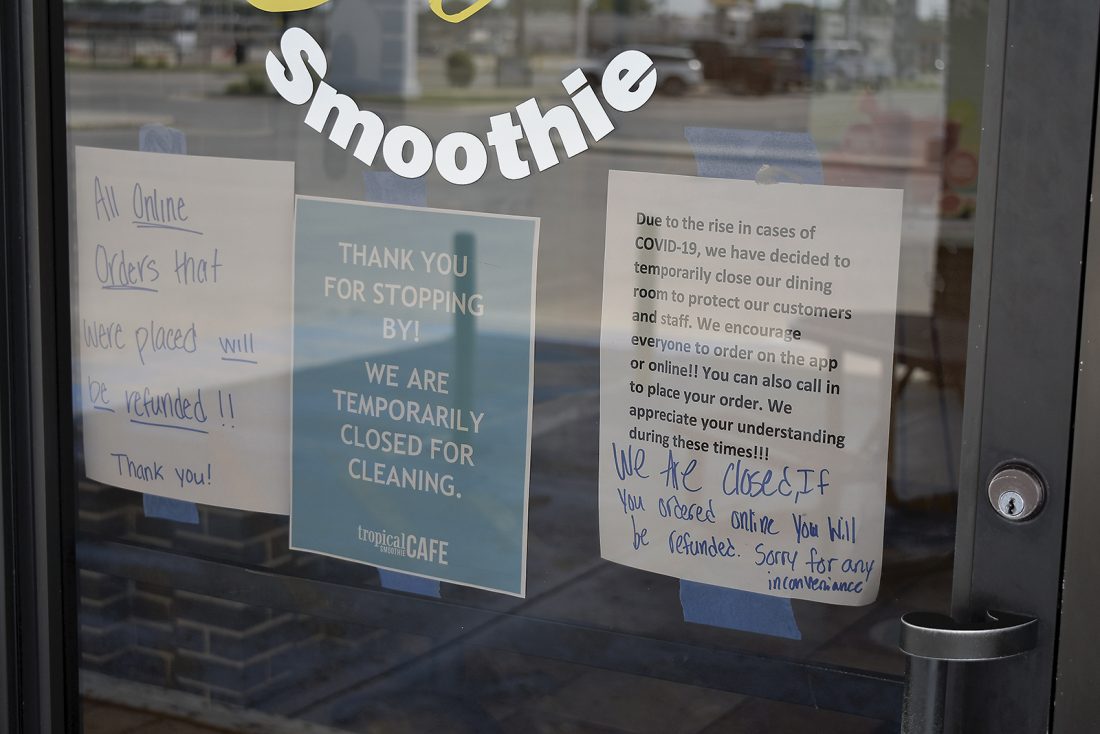 Smoothie
All Online
Orders that
were placed will
be refunded!!
Thank you!
THANK YOU
FOR STOPPING
BY!
WE ARE
TEMPORARILY
CLOSED FOR
CLEANING.
tropical
SMOOTHIE CAFE
Due to the rise in cases of
COVID-19, we have decided to
temporarily close our dining
room to protect our customers
and staff. We encourage
everyone to order on the app
or online!! You can also call in
to place your order. We
appreciate your understanding
during these times!!!
We Are closed, If
You ordered online you will
be refunded. Sorry for any
inconveniance